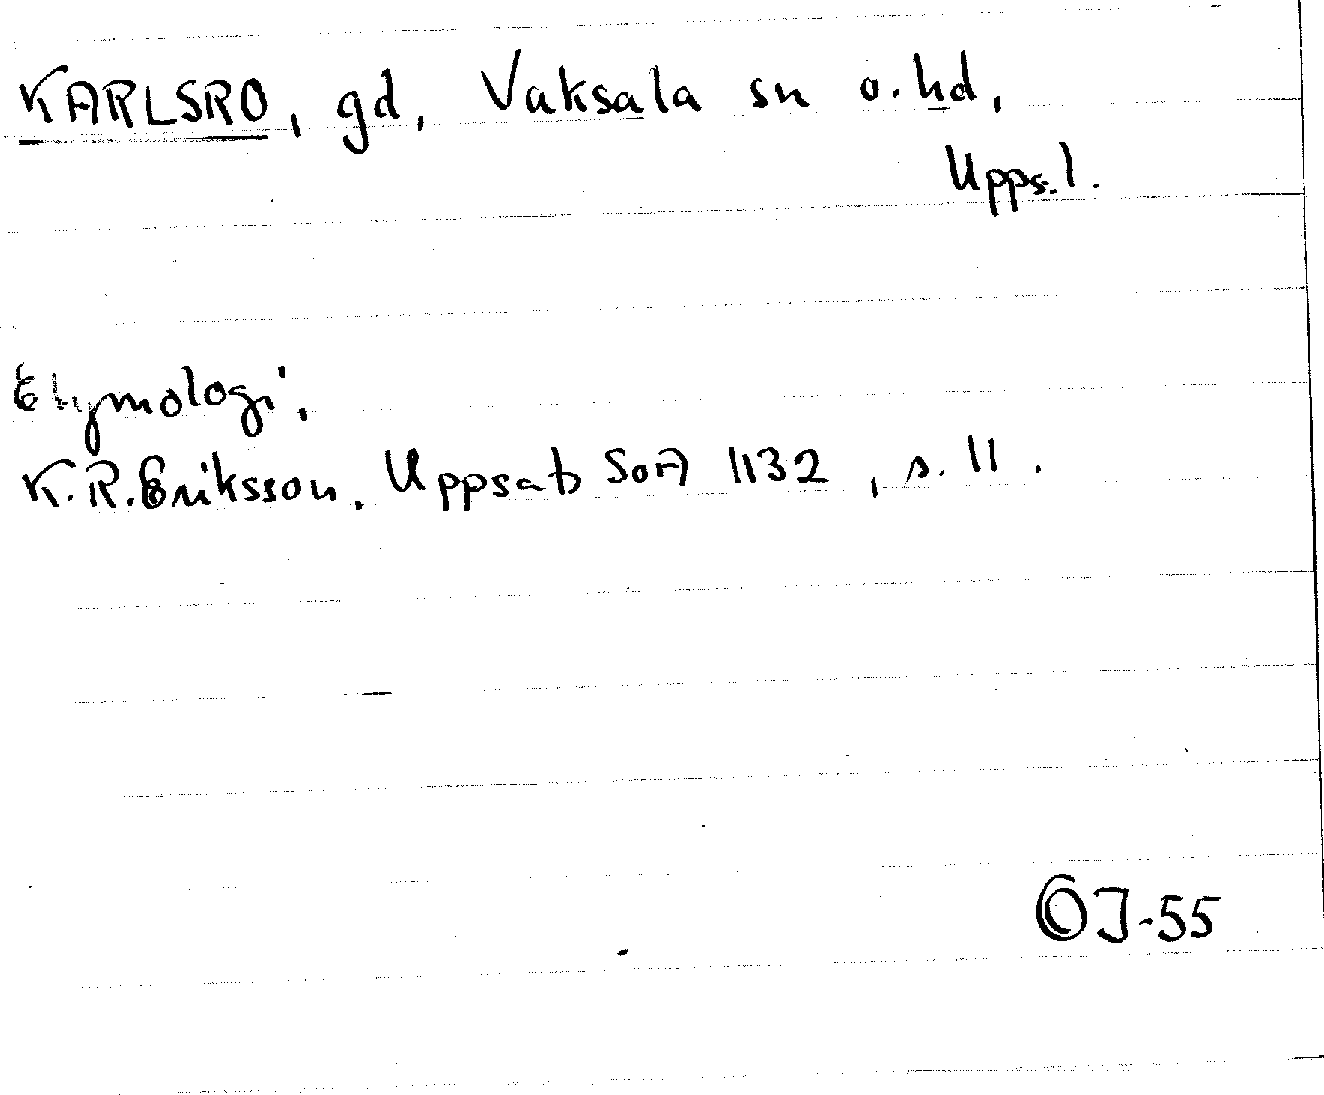 KARLSRO, gd, Vaksala sn o. hd,
Upps. l.
Etymologi,
K.R. Eriksson, Uppsats SOA 1132, s. 11.
OJ-55